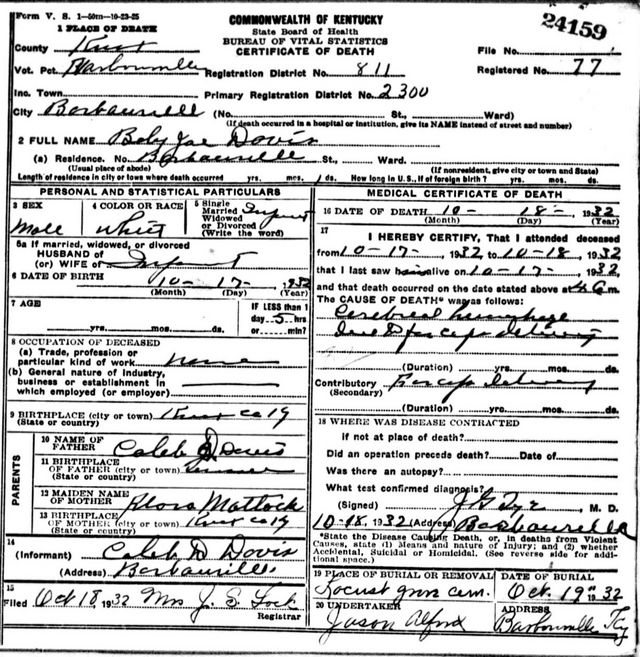 Form V. S. 1-50m-10-23-25
COMMONWEALTH OF KENTUCKY
State Board of Health
BUREAU OF VITAL STATISTICS
CERTIFICATE OF DEATH
24159
1 PLACE OF DEATH
County Knox
File No.
Vot. Pct. Barbourville Registration District No. 811 Registered No. 77
Inc. Town Primary Registration District No. 2300
City Barbourville (No. St., Ward)
(If death occurred in a hospital or institution, give its NAME instead of street and number)
2 FULL NAME Baby Joe Davis
(a) Residence. No. Barbourville St., Ward.
(Usual place of abode) (If nonresident, give city or town and State)
Length of residence in city or town where death occurred yrs. mos. 1 ds. How long in U. S., if of foreign birth? yrs. mos. ds.
PERSONAL AND STATISTICAL PARTICULARS
3 SEX Male
4 COLOR OR RACE White
5 Single Married Widowed or Divorced (Write the word) Infant
5a If married, widowed, or divorced
HUSBAND of
(or) WIFE of Infant
6 DATE OF BIRTH 10-17-, 1932
(Month) (Day) (Year)
7 AGE yrs. mos. ds.
IF LESS than 1
day 5 hrs
or min?
8 OCCUPATION OF DECEASED
(a) Trade, profession or
particular kind of work none
(b) General nature of industry,
business or establishment in
which employed (or employer)
9 BIRTHPLACE (city or town) Knox Co Ky
(State or country)
PARENTS
10 NAME OF
FATHER Caleb D Davis
11 BIRTHPLACE
OF FATHER (city or town)
(State or country)
12 MAIDEN NAME
OF MOTHER Flora Matlock
13 BIRTHPLACE
OF MOTHER (city or town) Knox Co Ky
(State or country)
14
(Informant) Caleb D Davis
(Address) Barbourville
15
Filed Oct 18, 1932 Mrs J. S. Lock
Registrar
MEDICAL CERTIFICATE OF DEATH
16 DATE OF DEATH 10- 18-, 1932
(Month) (Day) (Year)
17
I HEREBY CERTIFY, That I attended deceased
from 10-17-, 1932 to 10-18, 1932
that I last saw him alive on 10-17-, 1932,
and that death occurred on the date stated above at m.
The CAUSE OF DEATH* was as follows:
Cerebral hemorrhage
Due to forceps delivery
(Duration) yrs. mos. ds.
Contributory Forceps Delivery
(Secondary)
(Duration) yrs. mos. ds.
18 WHERE WAS DISEASE CONTRACTED
If not at place of death?
Did an operation precede death? Date of
Was there an autopsy?
What test confirmed diagnosis?
(Signed) J G Tye M. D.
10-18, 1932 (Address) Barbourville
*State the Disease Causing Death, or, in deaths from Violent
Causes, state (1) Means and nature of Injury; and (2) whether
Accidental, Suicidal or Homicidal. (See reverse side for addi-
tional space.)
19 PLACE OF BURIAL OR REMOVAL
Locust Grove Cem.
DATE OF BURIAL
Oct. 19th 1932
20 UNDERTAKER
Jason Alford
ADDRESS
Barbourville Ky